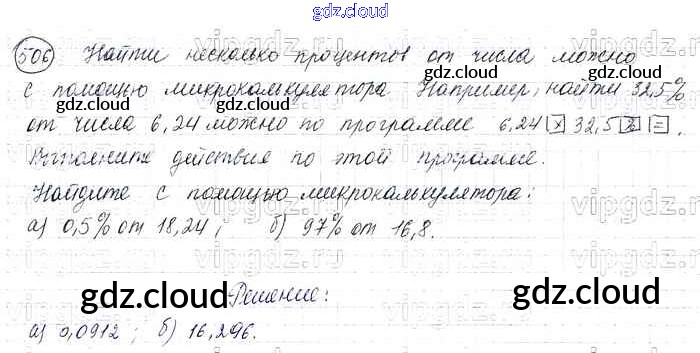 gdz.cloud
506 Найти несколько процентов от числа можно
с помощью микрокалькулятора. Например, найти 32,5%
gdz.cloud gdz.cloud
от числа 6,24 можно по программе 6,24 x 32,5 % = .
Выполните действия по этой программе.
Найдите с помощью микрокалькулятора:
а) 0,5% от 18,24; б) 97% от 16,8.
gdz.cloud gdz.cloud
Решение:
gdz.cloud gdz.cloud
а) 0,0912; б) 16,296.